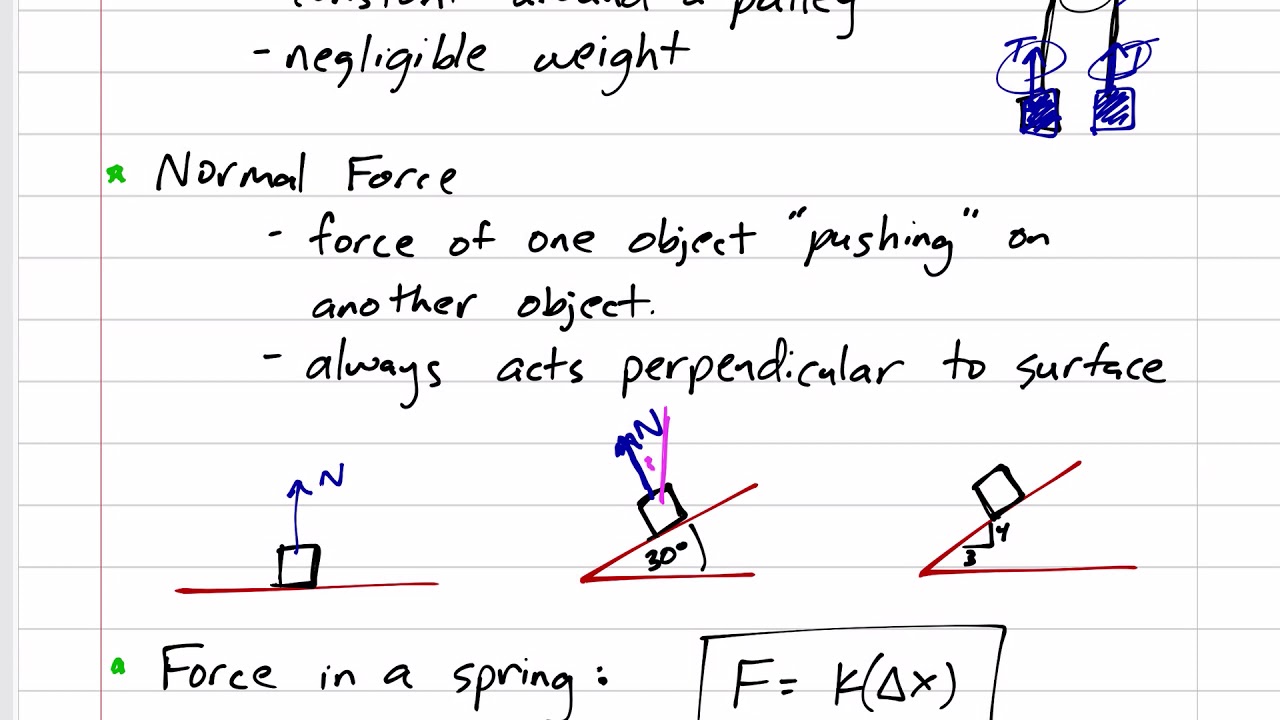 constant around a pulley
- negligible weight
T T
* Normal Force
- force of one object "pushing" on
another object.
- always acts perpendicular to surface
N
N
30°
4
3
Force in a spring:
F = K(Δx)